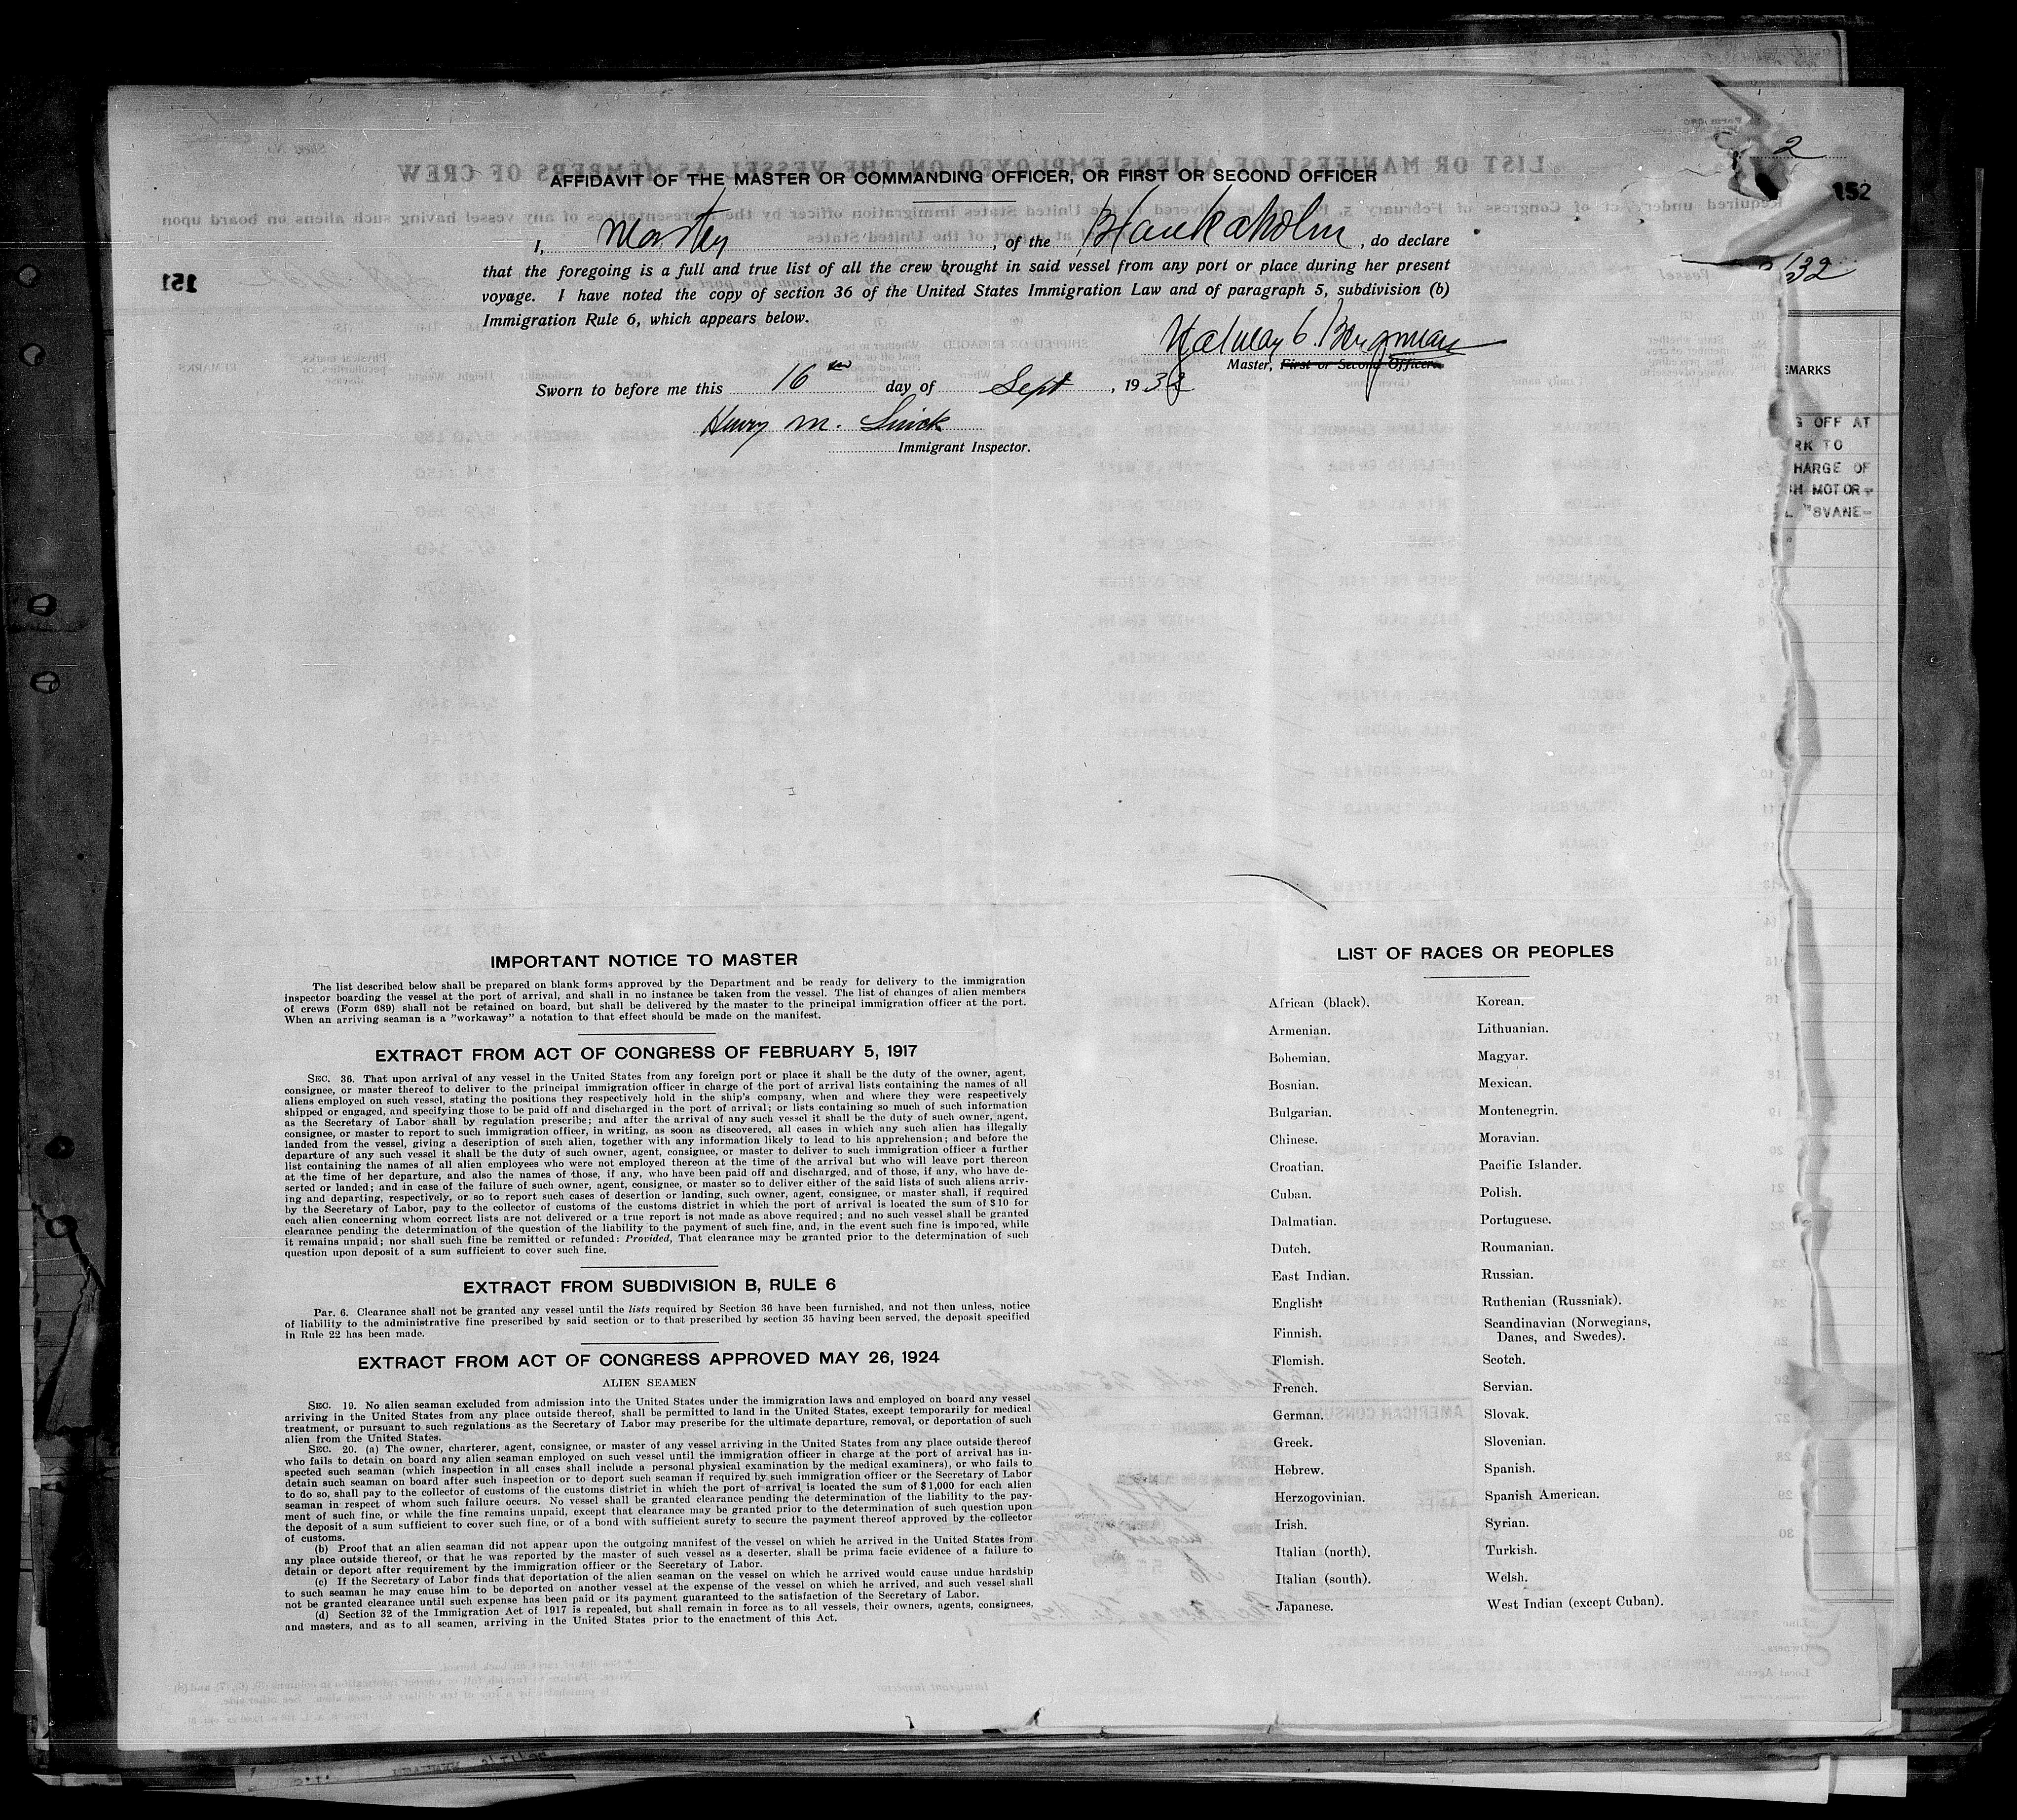 2
152
132
AFFIDAVIT OF THE MASTER OR COMMANDING OFFICER, OR FIRST OR SECOND OFFICER
I, Master, of the Blankaholm, do declare
that the foregoing is a full and true list of all the crew brought in said vessel from any port or place during her present
voyage. I have noted the copy of section 36 of the United States Immigration Law and of paragraph 5, subdivision (b)
Immigration Rule 6, which appears below.
Bergman
Master, First or Second Officer.
Sworn to before me this 16th day of Sept, 1932
Henry M.
Immigrant Inspector.
EMARKS
G OFF AT
RK TO
HARGE OF
SH MOTOR-
L "SVANE-
IMPORTANT NOTICE TO MASTER
The list described below shall be prepared on blank forms approved by the Department and be ready for delivery to the immigration
inspector boarding the vessel at the port of arrival, and shall in no instance be taken from the vessel. The list of changes of alien members
of crews (Form 689) shall not be retained on board, but shall be delivered by the master to the principal immigration officer at the port.
When an arriving seaman is a "workaway" a notation to that effect should be made on the manifest.
EXTRACT FROM ACT OF CONGRESS OF FEBRUARY 5, 1917
SEC. 36. That upon arrival of any vessel in the United States from any foreign port or place it shall be the duty of the owner, agent,
consignee, or master thereof to deliver to the principal immigration officer in charge of the port of arrival lists containing the names of all
aliens employed on such vessel, stating the positions they respectively hold in the ship's company, when and where they were respectively
shipped or engaged, and specifying those to be paid off and discharged in the port of arrival; or lists containing so much of such information
as the Secretary of Labor shall by regulation prescribe; and after the arrival of any such vessel it shall be the duty of such owner, agent,
consignee, or master to report to such immigration officer, in writing, as soon as discovered, all cases in which any such alien has illegally
landed from the vessel, giving a description of such alien, together with any information likely to lead to his apprehension; and before the
departure of any such vessel it shall be the duty of such owner, agent, consignee, or master to deliver to such immigration officer a further
list containing the names of all alien employees who were not employed thereon at the time of the arrival but who will leave port thereon
at the time of her departure, and also the names of those, if any, who have been paid off and discharged, and of those, if any, who have de-
serted or landed; and in case of the failure of such owner, agent, consignee, or master so to deliver either of the said lists of such aliens arriv-
ing and departing, respectively, or so to report such cases of desertion or landing, such owner, agent, consignee, or master shall, if required
by the Secretary of Labor, pay to the collector of customs of the customs district in which the port of arrival is located the sum of $10 for
each alien concerning whom correct lists are not delivered or a true report is not made as above required; and no such vessel shall be granted
clearance pending the determination of the question of the liability to the payment of such fine, and, in the event such fine is imposed, while
it remains unpaid; nor shall such fine be remitted or refunded: Provided, That clearance may be granted prior to the determination of such
question upon deposit of a sum sufficient to cover such fine.
EXTRACT FROM SUBDIVISION B, RULE 6
Par. 6. Clearance shall not be granted any vessel until the lists required by Section 36 have been furnished, and not then unless, notice
of liability to the administrative fine prescribed by said section or to that prescribed by section 35 having been served, the deposit specified
in Rule 22 has been made.
EXTRACT FROM ACT OF CONGRESS APPROVED MAY 26, 1924
ALIEN SEAMEN
SEC. 19. No alien seaman excluded from admission into the United States under the immigration laws and employed on board any vessel
arriving in the United States from any place outside thereof, shall be permitted to land in the United States, except temporarily for medical
treatment, or pursuant to such regulations as the Secretary of Labor may prescribe for the ultimate departure, removal, or deportation of such
alien from the United States.
SEC. 20. (a) The owner, charterer, agent, consignee, or master of any vessel arriving in the United States from any place outside thereof
who fails to detain on board any alien seaman employed on such vessel until the immigration officer in charge at the port of arrival has in-
spected such seaman (which inspection in all cases shall include a personal physical examination by the medical examiners), or who fails to
detain such seaman on board after such inspection or to deport such seaman if required by such immigration officer or the Secretary of Labor
to do so, shall pay to the collector of customs of the customs district in which the port of arrival is located the sum of $1,000 for each alien
seaman in respect of whom such failure occurs. No vessel shall be granted clearance pending the determination of the liability to the pay-
ment of such fine, or while the fine remains unpaid, except that clearance may be granted prior to the determination of such question upon
the deposit of a sum sufficient to cover such fine, or of a bond with sufficient surety to secure the payment thereof approved by the collector
of customs.
(b) Proof that an alien seaman did not appear upon the outgoing manifest of the vessel on which he arrived in the United States from
any place outside thereof, or that he was reported by the master of such vessel as a deserter, shall be prima facie evidence of a failure to
detain or deport after requirement by the immigration officer or the Secretary of Labor.
(c) If the Secretary of Labor finds that deportation of the alien seaman on the vessel on which he arrived would cause undue hardship
to such seaman he may cause him to be deported on another vessel at the expense of the vessel on which he arrived, and such vessel shall
not be granted clearance until such expense has been paid or its payment guaranteed to the satisfaction of the Secretary of Labor.
(d) Section 32 of the Immigration Act of 1917 is repealed, but shall remain in force as to all vessels, their owners, agents, consignees,
and masters, and as to all seamen, arriving in the United States prior to the enactment of this Act.
LIST OF RACES OR PEOPLES
African (black).
Armenian.
Bohemian.
Bosnian.
Bulgarian.
Chinese.
Croatian.
Cuban.
Dalmatian.
Dutch.
East Indian.
English.
Finnish.
Flemish.
French.
German.
Greek.
Hebrew.
Herzogovinian.
Irish.
Italian (north).
Italian (south).
Japanese.
Korean.
Lithuanian.
Magyar.
Mexican.
Montenegrin.
Moravian.
Pacific Islander.
Polish.
Portuguese.
Roumanian.
Russian.
Ruthenian (Russniak).
Scandinavian (Norwegians,
Danes, and Swedes).
Scotch.
Servian.
Slovak.
Slovenian.
Spanish.
Spanish American.
Syrian.
Turkish.
Welsh.
West Indian (except Cuban).